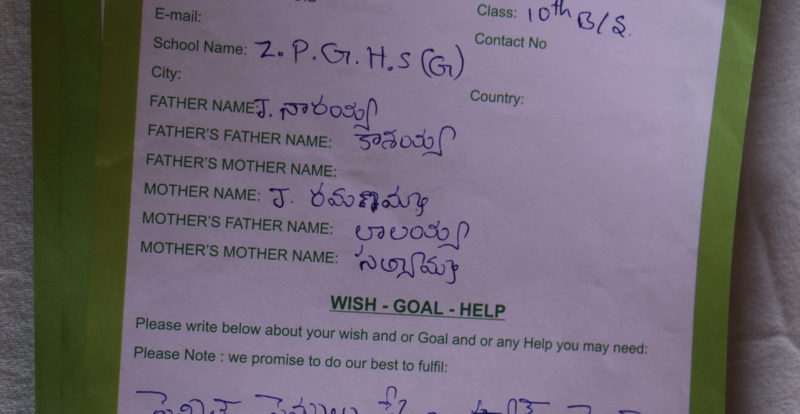 E-mail:
Class: 10th B/S.
School Name: Z.P.G.H.S (G)
Contact No
City:
Country:
FATHER NAME: J. నారయ్య
FATHER'S FATHER NAME: కాశయ్య
FATHER'S MOTHER NAME:
MOTHER NAME: J. రమణమ్మ
MOTHER'S FATHER NAME: లాలయ్య
MOTHER'S MOTHER NAME:
WISH - GOAL - HELP
Please write below about your wish and or Goal and or any Help you may need:
Please Note : we promise to do our best to fulfil: